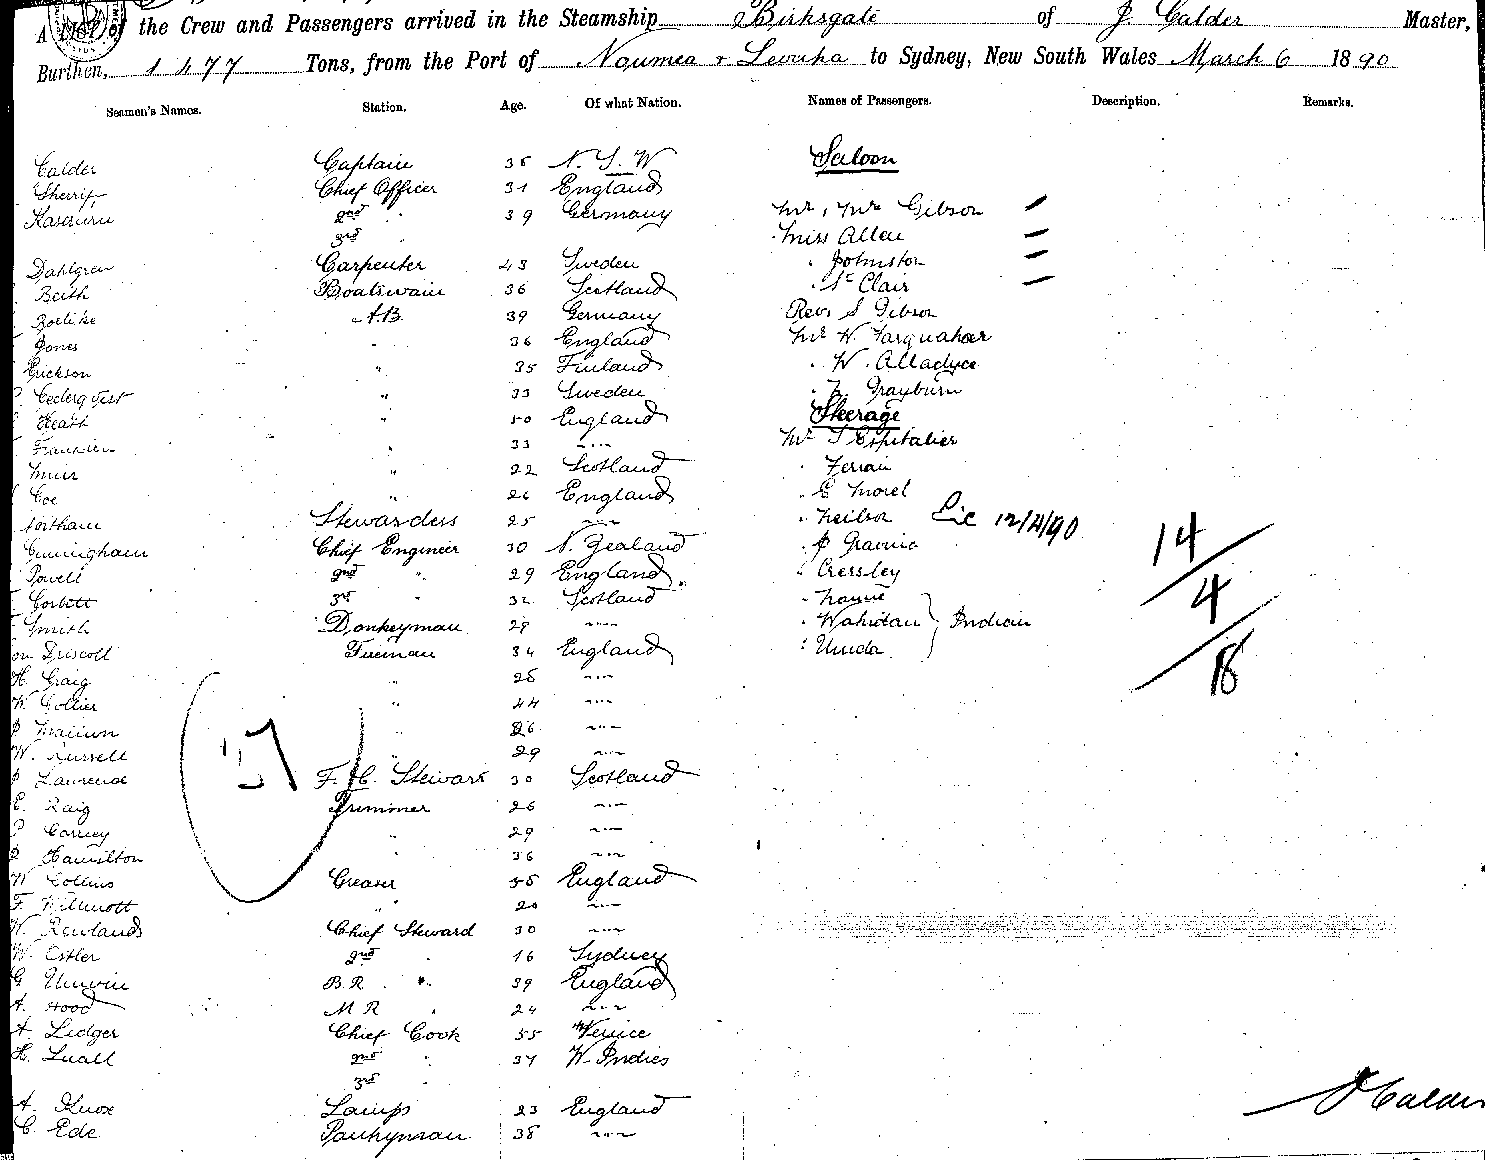 A List of the Crew and Passengers arrived in the Steamship Birksgate of J. Calder Master,
Burthen, 1477 Tons, from the Port of Noumea & Levuka to Sydney, New South Wales March 6 1890
Seamen's Names. Station. Age. Of what Nation. Names of Passengers. Description. Remarks.
Calder Captain 35 N. S. W Saloon
Sherrif Chief Officer 31 England
2nd " 39 Germany Mr, Mrs Gibson
3rd Miss Allen
Dahlgren Carpenter 43 Sweden " Johnston
Beith Boatswain 36 Scotland " St Clair
A.B. 39 Germany Revd S Gibson
Jones " 36 England Mr W. Farquahar
Erickson " 35 Finland " W.
Cederqvist " 33 Sweden " Grayburn
Heath " 50 England Steerage
" 33 " Mr Espitalier
Muir " 22 Scotland "
Coe " 26 England " E Morel
Northam Stewardess 25 " " Neilson 12/4/90
Cuningham Chief Engineer 30 N. Zealand " 14
Powell 2nd " 29 England " Cressley
Corbett 3rd " 32 Scotland " 4
Smith Donkeyman 29 " " Wahidan } Indian
Driscoll Fireman 34 England "
H. Craig " 28 " 18
W. Collier " 44 "
" 26 "
W. Russell " 29 "
J Laurence F. C. Steward 30 Scotland
E. Raig Trimmer 26 "
" 29 "
Hamilton " 36 "
W Collins Greaser 55 England
F. Willmott " 20 "
W. Rowlands Chief Steward 30 "
W. Estler 2nd " 16 Sydney
G Unwin B.R. " 39 England
A. Hood M R " 24 "
A. Ledger Chief Cook 55 Venice
H. Luall 2nd " 37 W. Indies
3rd "
A. Knox Lamps 23 England
C. Ede Pantryman 38 "
J Calder